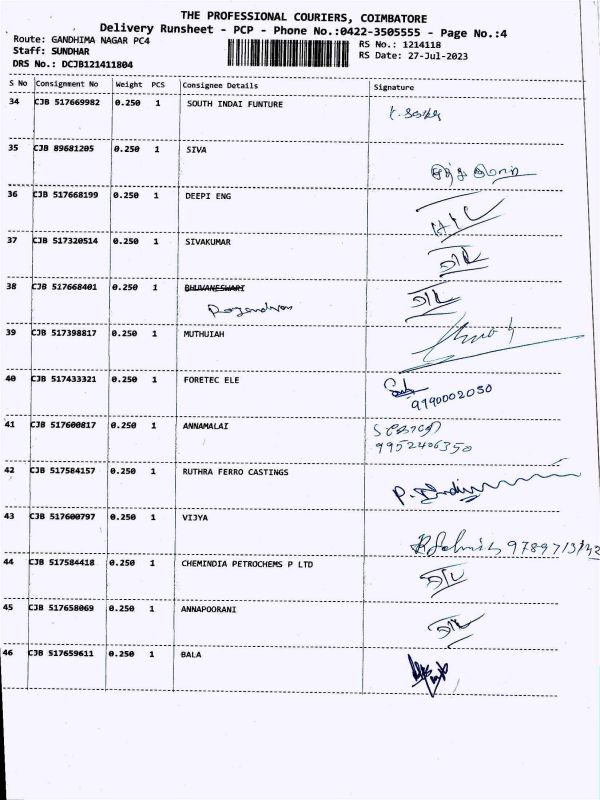 THE PROFESSIONAL COURIERS, COIMBATORE
Delivery Runsheet - PCP - Phone No.:0422-3505555 - Page No.:4
Route: GANDHIMA NAGAR PC4 RS No.: 1214118
Staff: SUNDHAR RS Date: 27-Jul-2023
DRS No.: DCJB121411804
S No Consignment No Weight PCS Consignee Details Signature
34 CJB 517669982 0.250 1 SOUTH INDAI FUNTURE
35 CJB 89681205 0.250 1 SIVA
36 CJB 517668199 0.250 1 DEEPI ENG
37 CJB 517320514 0.250 1 SIVAKUMAR
38 CJB 517668401 0.250 1 BHUVANESWARI
39 CJB 517398817 0.250 1 MUTHUIAH
40 CJB 517433321 0.250 1 FORETEC ELE
9790002050
41 CJB 517600817 0.250 1 ANNAMALAI
9952406350
42 CJB 517584157 0.250 1 RUTHRA FERRO CASTINGS
43 CJB 517600797 0.250 1 VIJYA
44 CJB 517584418 0.250 1 CHEMINDIA PETROCHEMS P LTD
45 CJB 517658069 0.250 1 ANNAPOORANI
46 CJB 517659611 0.250 1 BALA